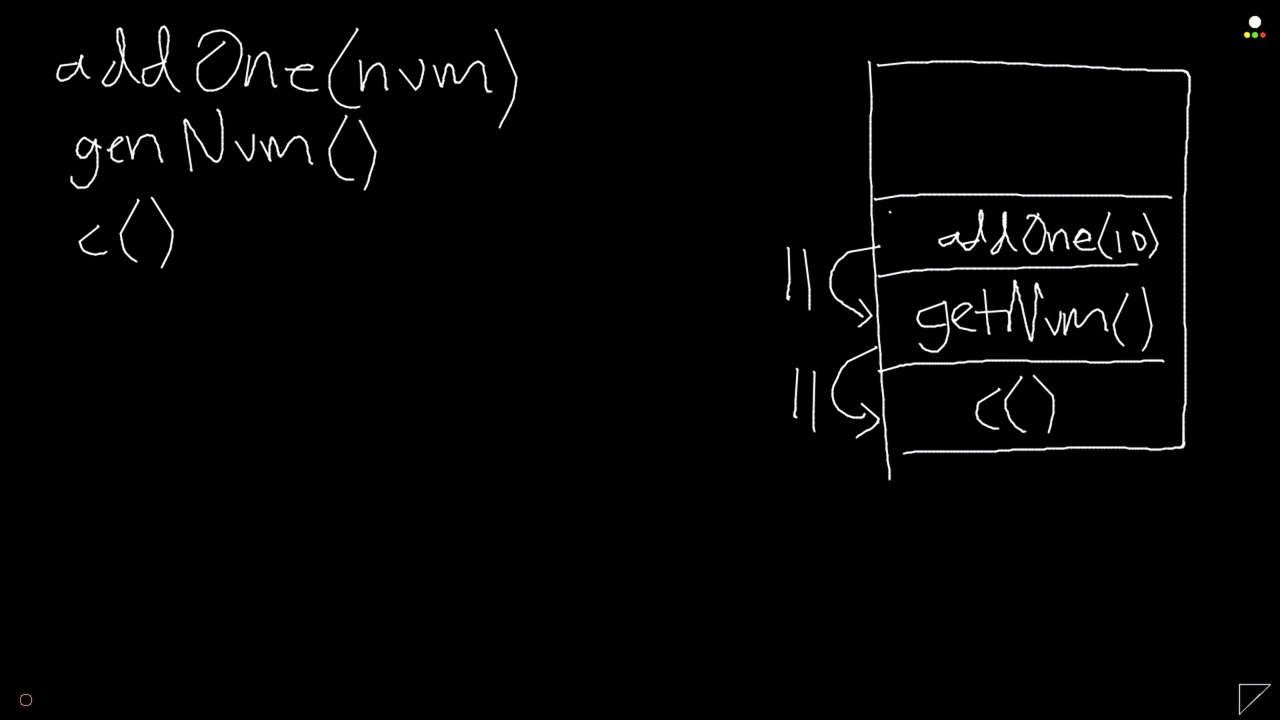 addOne(num)
genNum()
c()
addOne(10)
11
getNum()
11
c()